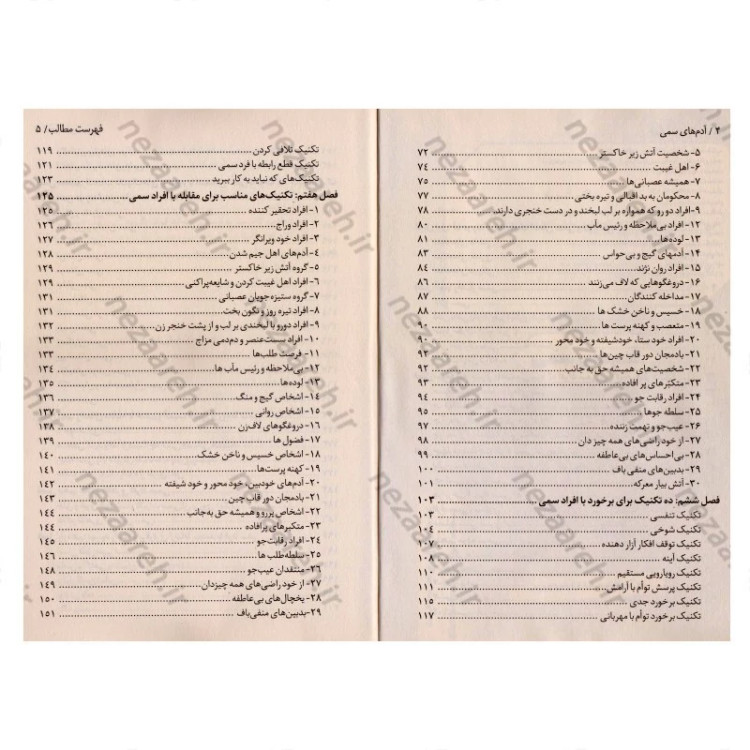 ۴ / آدم‌های سمی
۵- شخصیت آتش زیر خاکستر ........ ۷۲
۶- اهل غیبت ........ ۷۴
۷- همیشه عصبانی‌ها ........ ۷۵
۸- محکومان به بد اقبالی و تیره بختی ........ ۷۷
۹-افراد دو رو که همواره بر لب لبخند و در دست خنجری دارند ........ ۷۸
۱۲- افراد بی‌ملاحظه و رئیس مآب ........ ۸۰
۱۳- لوده‌ها ........ ۸۱
۱۴- آدمهای گیج و بی‌حواس ........ ۸۳
۱۵- افراد روان نژند ........ ۸۴
۱۶- دروغگوهایی که لاف می‌زنند ........ ۸۶
۱۷- مداخله کنندگان ........ ۸۷
۱۸- خسیس و ناخن خشک ها ........ ۸۸
۱۹- متعصب و کهنه پرست ها ........ ۹۰
۲۰- افراد خود ستا، خودشیفته و خود محور ........ ۹۰
۲۱- بادمجان دور قاب چین‌ها ........ ۹۲
۲۲- شخصیت‌های همیشه حق به جانب ........ ۹۲
۲۳- متکبّرهای پر افاده ........ ۹۳
۲۴- افراد رقابت جو ........ ۹۴
۲۵- سلطه جوها ........ ۹۵
۲۶- عیب‌جو و تهمت زننده ........ ۹۷
۲۷- از خود راضی‌های همه چیز دان ........ ۹۸
۲۸- بی‌احساس‌های بی‌عاطفه ........ ۹۹
۲۹- بدبین‌های منفی باف ........ ۱۰۰
۳۰- آتش بیار معرکه ........ ۱۰۱
فصل ششم: ده تکنیک برای برخورد با افراد سمی ........ ۱۰۳
تکنیک تنفسی ........ ۱۰۳
تکنیک شوخی ........ ۱۰۴
تکنیک توقف افکار آزار دهنده ........ ۱۰۷
تکنیک آینه ........ ۱۰۸
تکنیک رویارویی مستقیم ........ ۱۱۰
تکنیک پرسش توأم با آرامش ........ ۱۱۱
تکنیک برخورد جدی ........ ۱۱۵
تکنیک برخورد توأم با مهربانی ........ ۱۱۷
فهرست مطالب/ ۵
تکنیک تلافی کردن ........ ۱۱۹
تکنیک قطع رابطه با فرد سمی ........ ۱۲۱
تکنیک‌های که نباید به کار ببرید ........ ۱۲۳
فصل هفتم: تکنیک‌های مناسب برای مقابله با افراد سمی ........ ۱۲۵
۱- افراد تحقیر کننده ........ ۱۲۵
۲- افراد وراج ........ ۱۲۶
۳- افراد خود ویرانگر ........ ۱۲۷
۴- آدمهای اهل جیم شدن ........ ۱۲۸
۵- گروه آتش زیر خاکستر ........ ۱۲۹
۶- افراد اهل غیبت کردن و شایعه‌پراکنی ........ ۱۳۰
۷- گروه ستیزه جویان عصبانی ........ ۱۳۱
۸- افراد تیره روز و نگون بخت ........ ۱۳۱
۹- افراد دورو با لبخندی بر لب و از پشت خنجر زن ........ ۱۳۲
۱۰- افراد سست‌عنصر و دم‌دمی مزاج ........ ۱۳۳
۱۱- فرصت طلب‌ها ........ ۱۳۳
۱۲- بی‌ملاحظه و رئیس مآب ها ........ ۱۳۴
۱۳- لوده‌ها ........ ۱۳۵
۱۴- اشخاص گیج و منگ ........ ۱۳۶
۱۵- اشخاص روانی ........ ۱۳۷
۱۶- دروغگوهای لاف‌زن ........ ۱۳۸
۱۷- فضول ها ........ ۱۳۹
۱۸- اشخاص خسیس و ناخن خشک ........ ۱۴۰
۱۹- کهنه پرست‌ها ........ ۱۴۱
۲۰- آدم‌های خودبین، خود محور و خود شیفته ........ ۱۴۲
۲۱- بادمجان دور قاب چین ........ ۱۴۳
۲۲- اشخاص پررو و همیشه حق به‌جانب ........ ۱۴۴
۲۳- متکبرهای پرافاده ........ ۱۴۴
۲۴- افراد رقابت‌جو ........ ۱۴۴
۲۵- سلطه‌طلب ها ........ ۱۴۶
۲۶- منتقدان عیب‌جو ........ ۱۴۸
۲۷- از خود راضی‌های همه چیزدان ........ ۱۴۹
۲۸- یخچال‌های بی‌عاطفه ........ ۱۵۰
۲۹- بدبین‌های منفی‌باف ........ ۱۵۱
nezaareh.ir